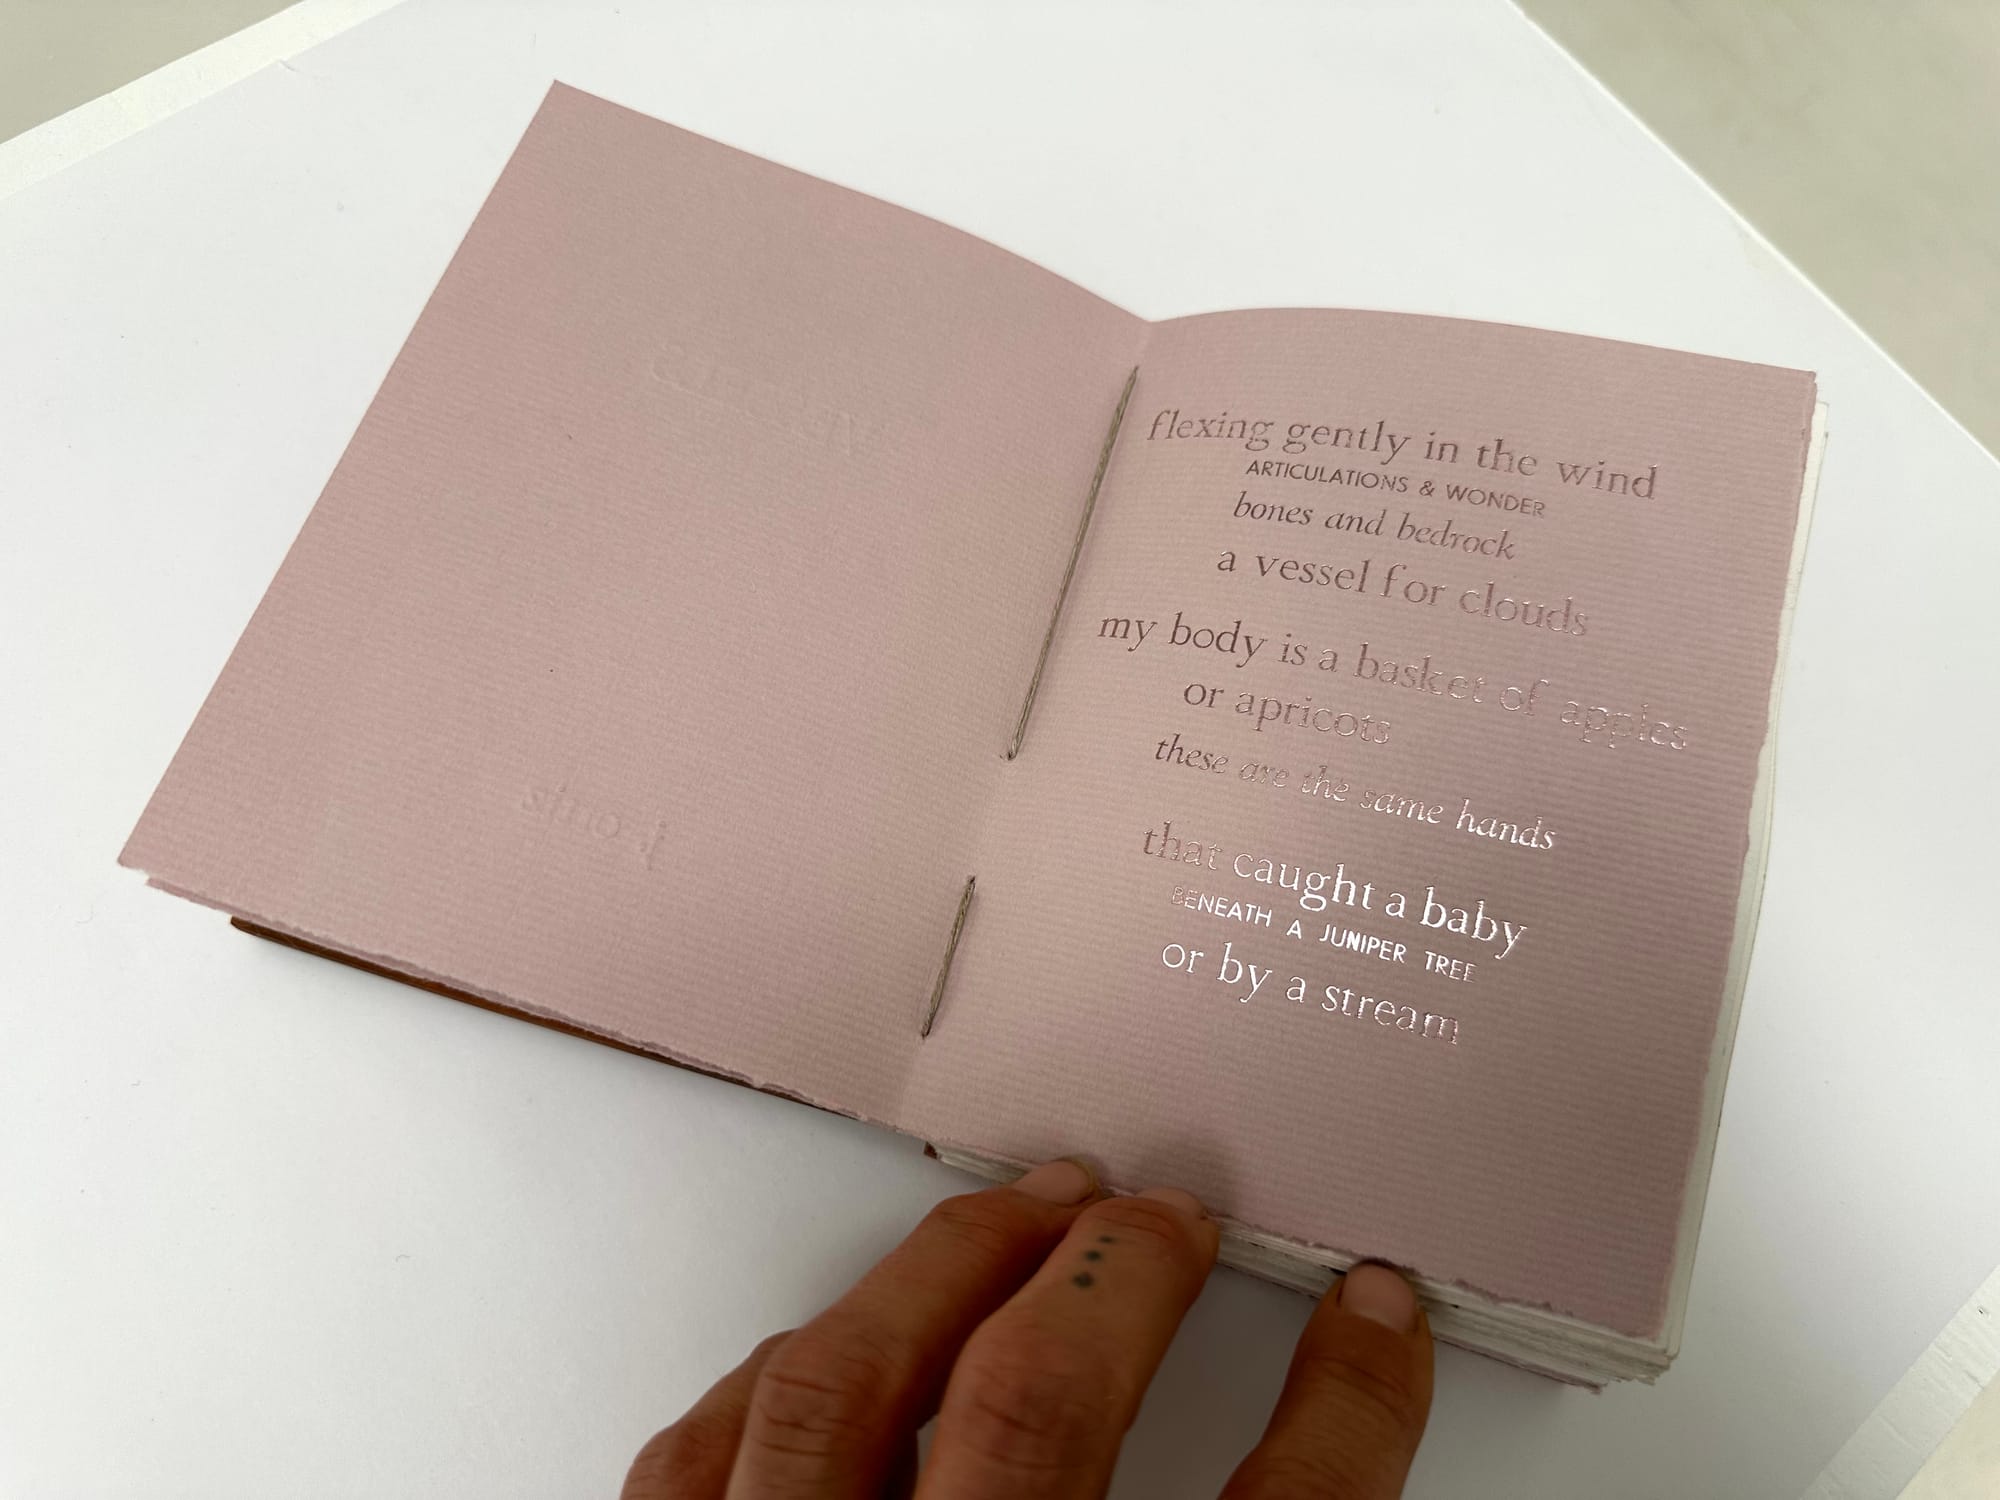 flexing gently in the wind
ARTICULATIONS & WONDER
bones and bedrock
a vessel for clouds
my body is a basket of apples
or apricots
these are the same hands
that caught a baby
BENEATH A JUNIPER TREE
or by a stream